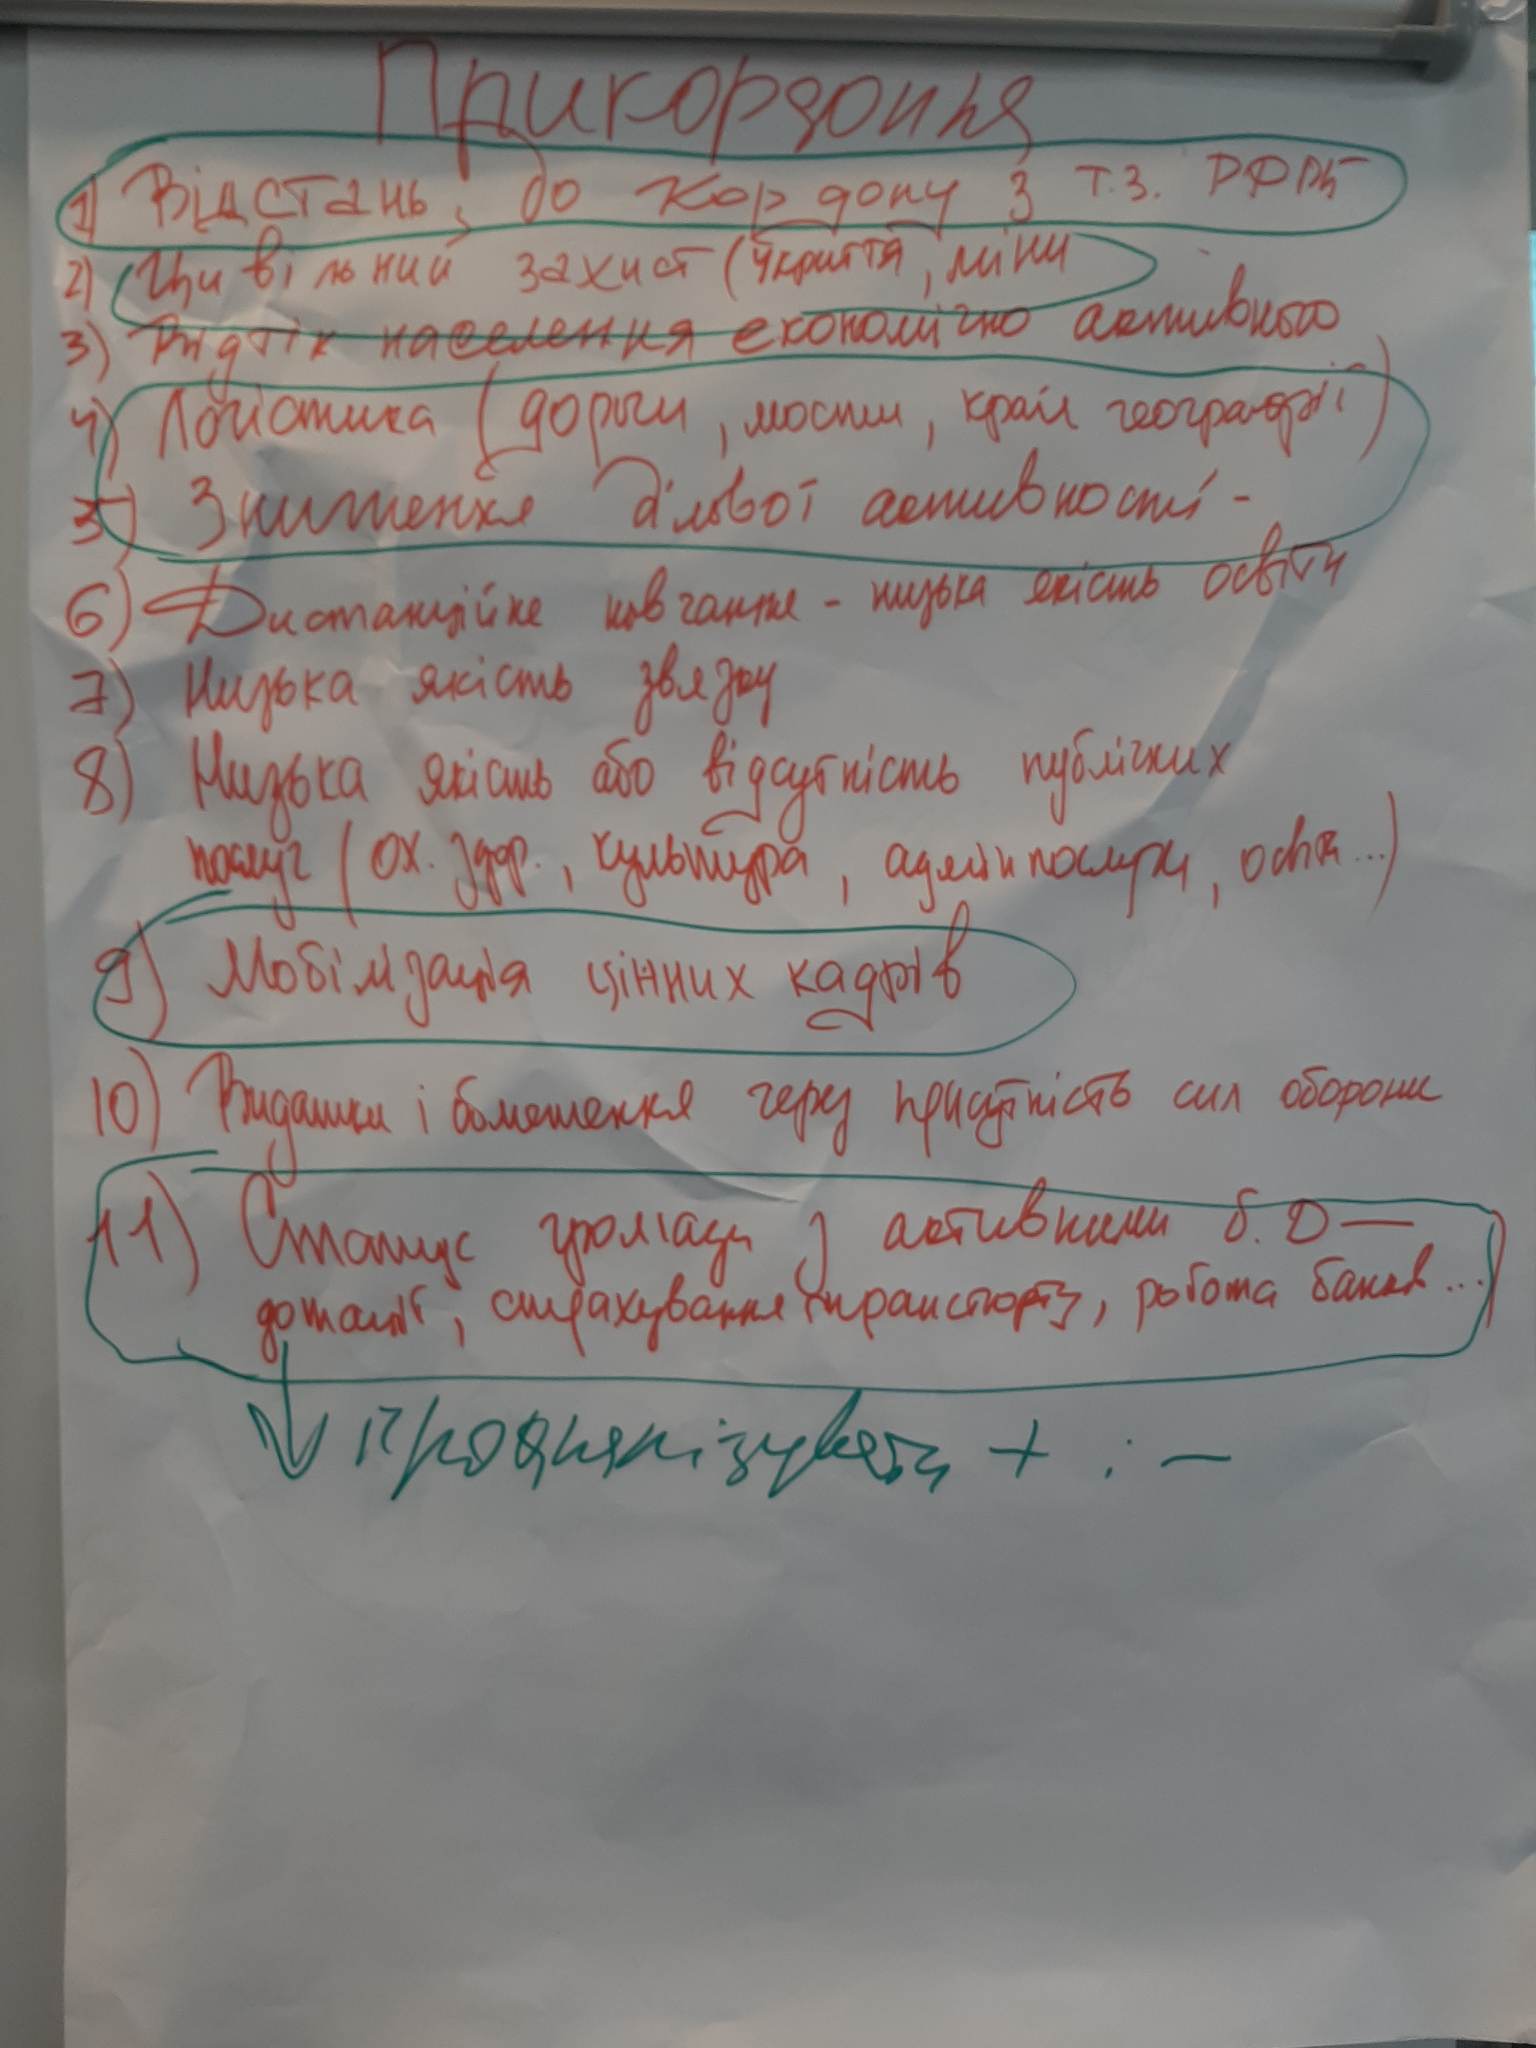 Прикордоння
1) Відстань до кордону з т.з. РФРБ
2) Цивільний захист (укриття, міни
3) Відтік населення економічно активного
4) Логістика (дороги, мости, край географії)
5) Зниження ділової активності -
6) Дистанційне навчання - низька якість освіти
7) Низька якість звязку
8) Низька якість або відсутність публічних
послуг (ох. здр., культура, адмін послуги, освіта...)
9) Мобілізація цінних кадрів
10) Видатки і обмеження через присутність сил оборони
11) Статус громади з активними б. Д —
дотації, страхування транспорту, робота банків...
↓ проаналізувати + : -